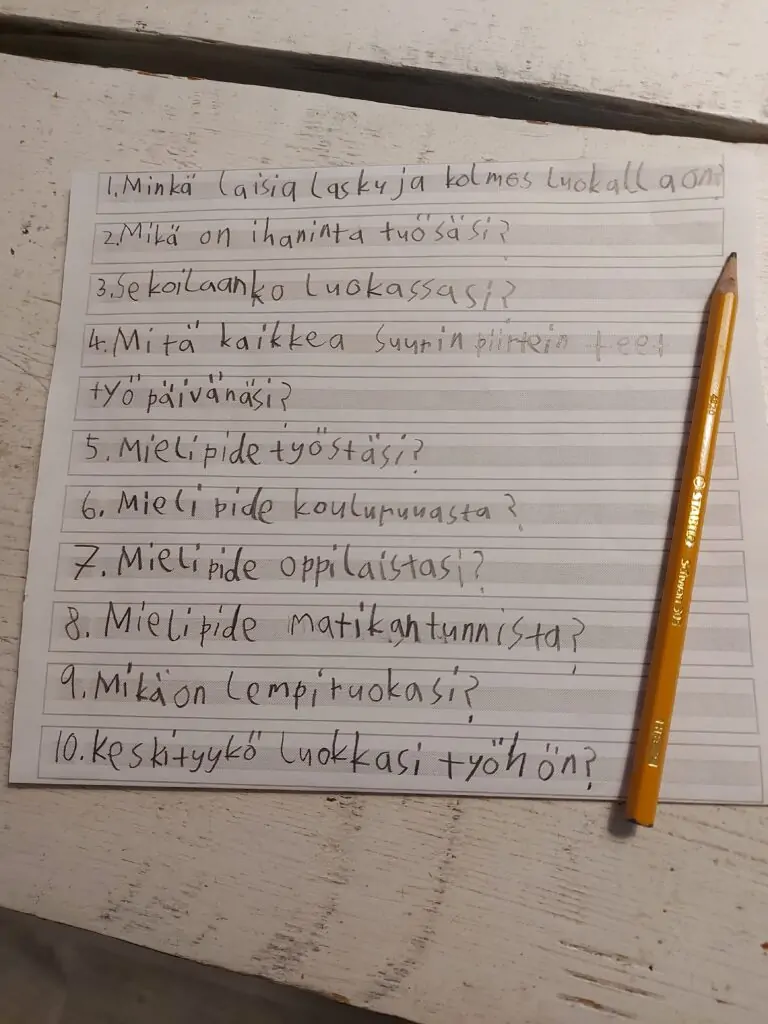 1. Minkä laisia laskuja kolmos luokalla on?
2. Mikä on ihaninta tuösäsi?
3. Sekoilaanko luokassasi?
4. Mitä kaikkea suurin piirtein teet
työ päivänäsi?
5. Mielipide työstäsi?
6. Mielipide kouluruuasta?
7. Mielipide oppilaistasi?
8. Mielipide matikantunnista?
9. Mikä on lempiruokasi?
10. Keskityykö luokkasi työhön?
STABILO